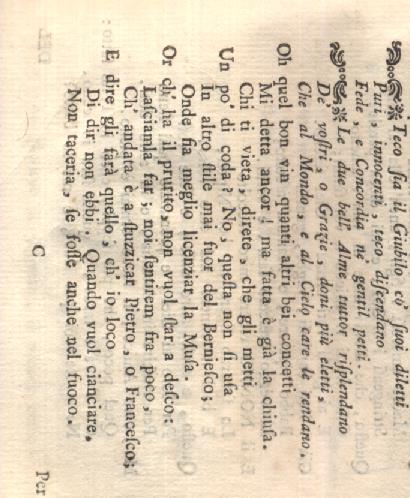 Teco ſia il Giubilo co' ſuoi diletti
Puri, innocenti, teco diſcendano
Fede, e Concordia ne' gentil petti.
Le due bell' Alme tuttor riſplendano
De' voſtri, o Grazie, doni più eletti,
Che al Mondo, e al Cielo care la rendano.
Oh quel bon vin quanti altri bei concetti
Mi detta ancor! ma fatta è già la chiuſa.
Chi ti vieta, direte, che gli metti
Un po' di coda? No, queſta non ſi uſa
In altro ſtile mai fuor del Bernieſco;
Onde ſia meglio licenziar la Muſa.
Or ch' ha il prurito, non vuol ſtar a deſco:
Laſciamla far; noi ſentirem fra poco,
Ch' andata è a ſtuzzicar Pietro, o Franceſco;
E dire gli farà quello, ch' io loco
Di dir non ebbi. Quando vuol cianciare,
Non taceria, ſe foſſe anche nel fuoco.
C
Per